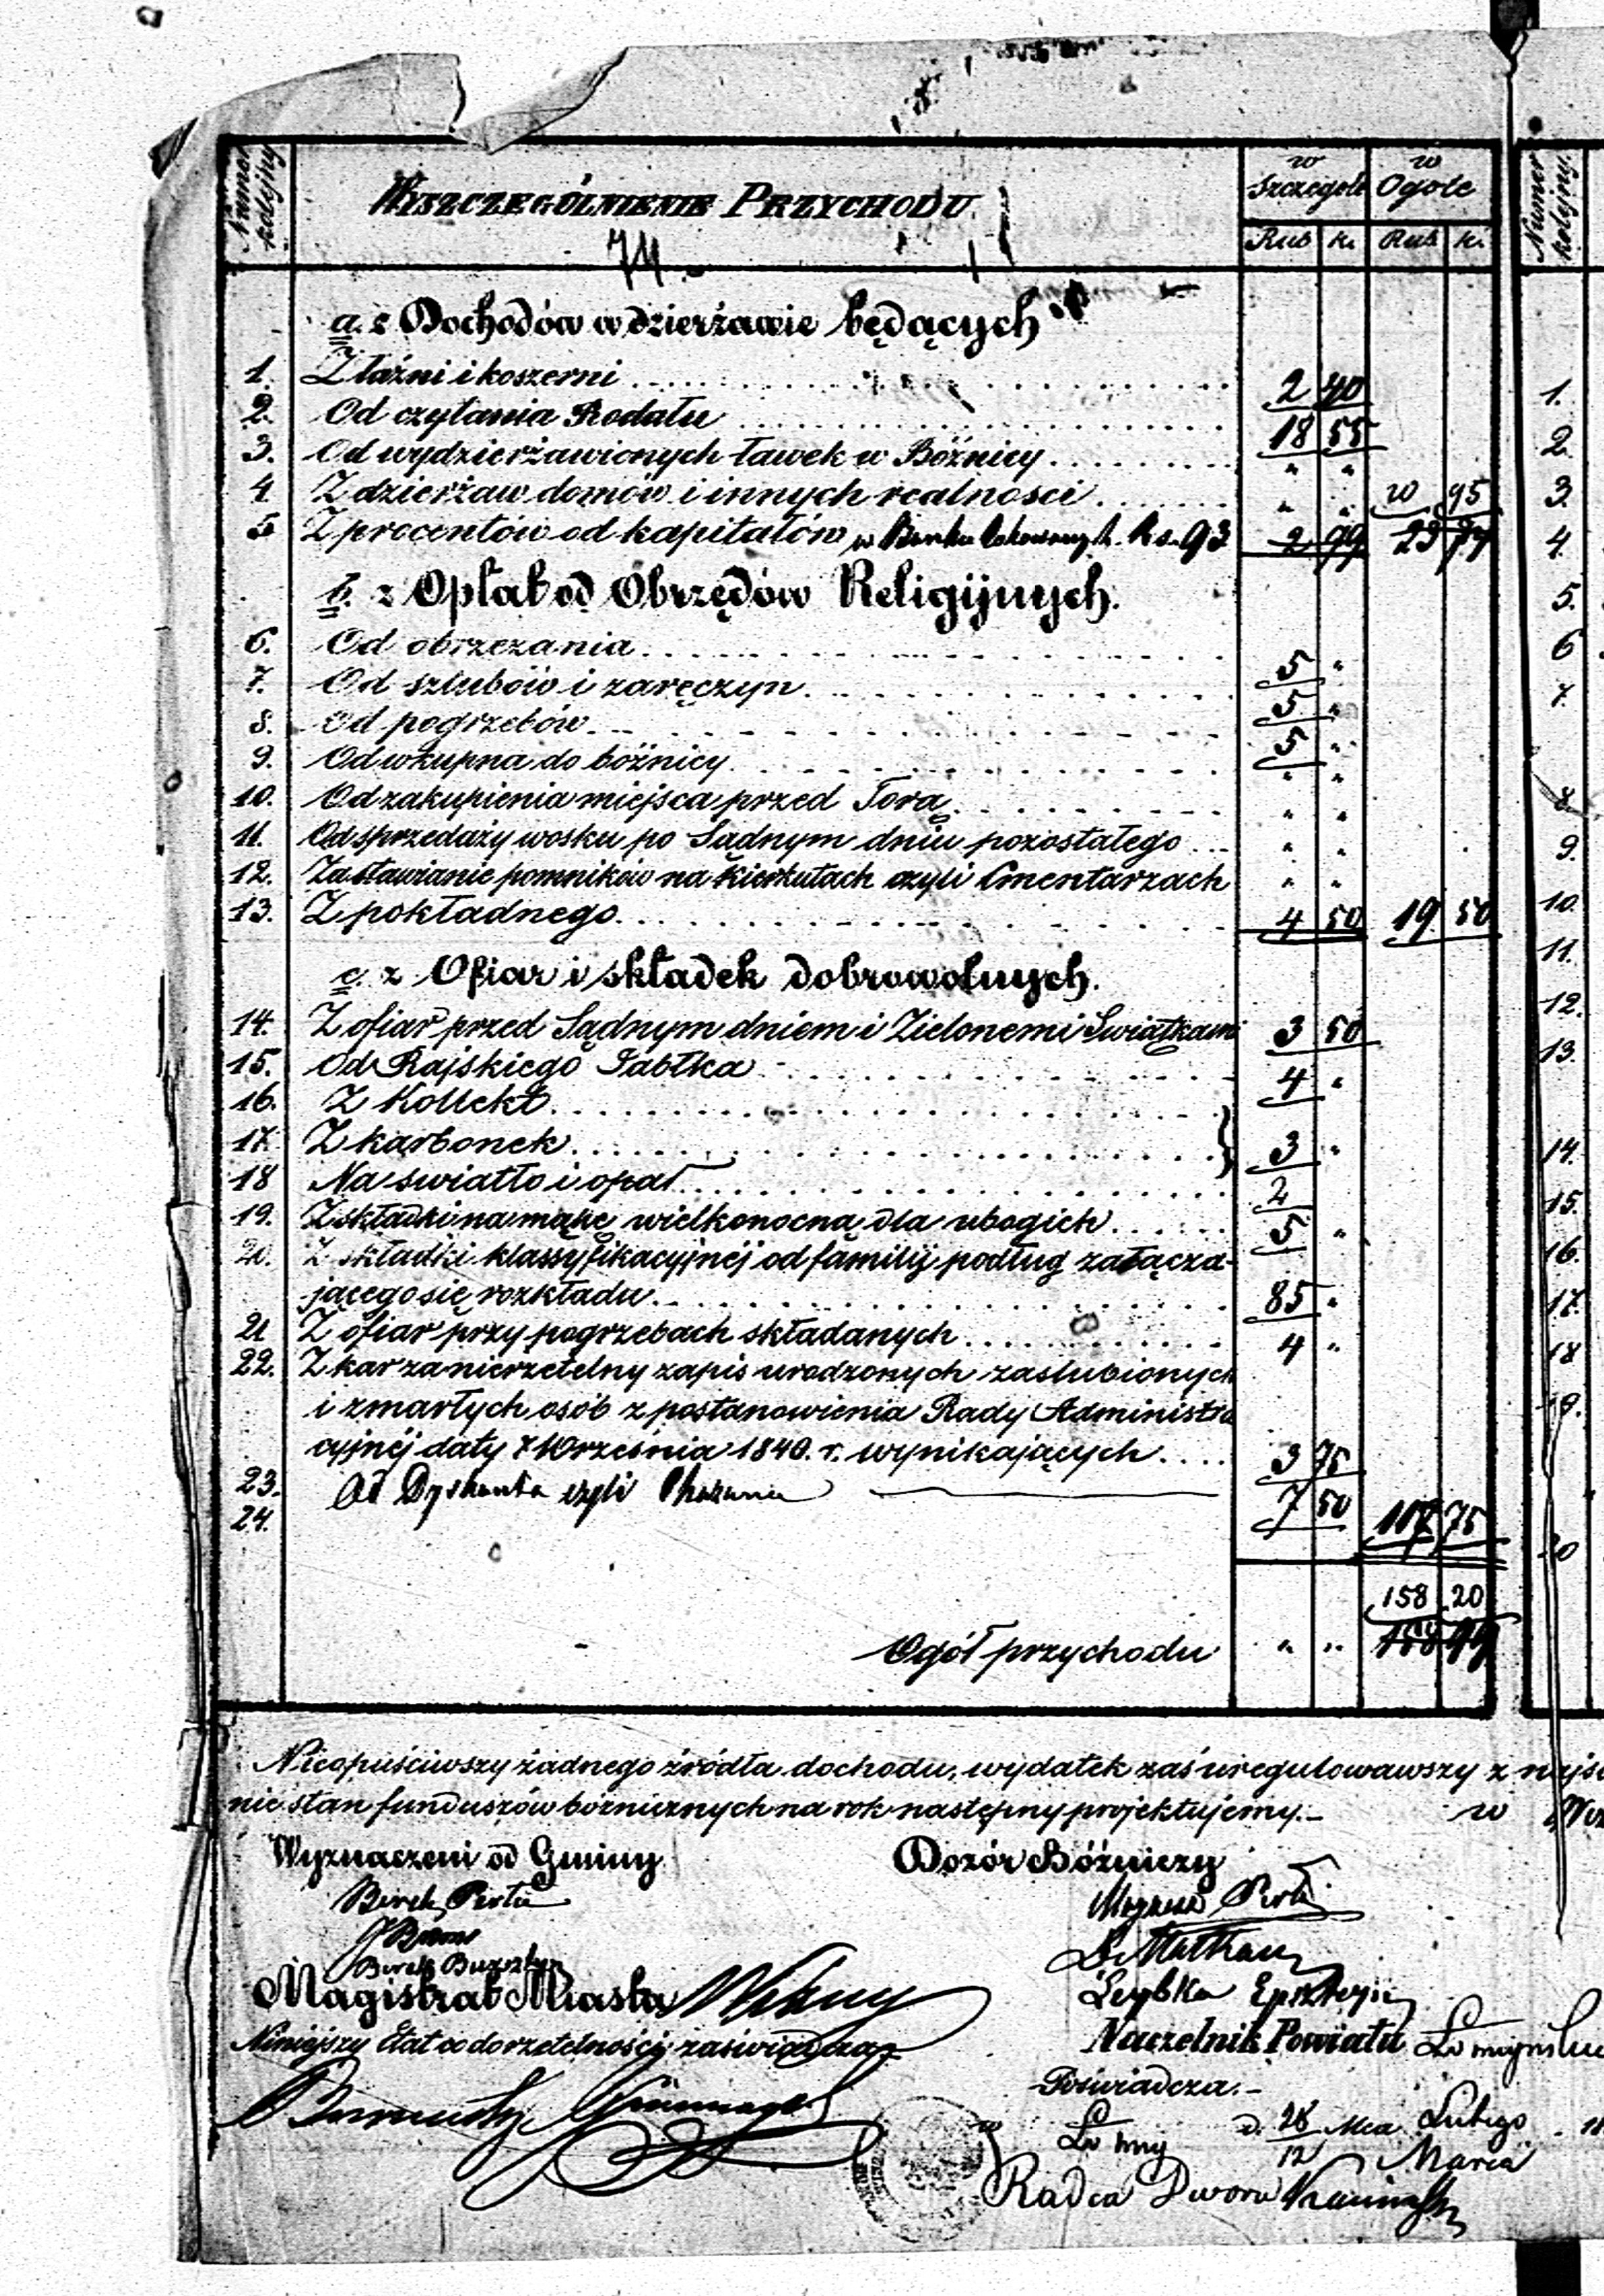 Numer kolejny
WYSZCZEGÓLNIENIE PRZYCHODU.
w Szczególe
w Ogóle
Rub k. Rub k.
Numer kolejny.
a. z Dochodów w dzierżawie będących
1. Z łaźni i koszerni 2 40
2. Od czytania Rodału 18 55
3. Od wydzierżawionych ławek w Bóźnicy " "
4 Z dzierżaw domów i innych realności " " 20 95
5 Z procentów od kapitałów w Banku lokowanych Rs. 93 2 99 23 94
b. z Opłat od Obrzędów Religijnych.
6. Od obrzezania 5 "
7. Od szlubów i zaręczyn 5 "
8. od pogrzebów 5 "
9. Od wkupna do bóźnicy " "
10. Od zakupienia miejsca przed Torą " "
11. Od sprzedaży wosku po Sądnym dniu pozostałego " "
12. Za stawianie pomników na Kierkutach czyli Cmentarzach " "
13. Z pokładnego 4 50 19 50
c. z Ofiar i składek dobrowolnych.
14. Z ofiar przed Sądnym dniem i Zielonemi Swiątkami 3 50
15. Od Rajskiego Jabłka 4 "
16. Z Kollekt
17. Z karbonek } 3 "
18 Na swiatło i opał 2
19. Z składki na mąkę wielkonocną dla ubogich 5 "
20. Z składki klassyfikacyjnéj od familij podług załącza-
jącego się rozkładu. 85 "
21 Z ofiar przy pogrzebach składanych 4 "
22. Z kar za nierzetelny zapis urodzonych zaslubionych
i zmarłych osób z postanowienia Rady Administra
cyjnéj daty 7 Września 1840. r. wynikających 3 75
23. Od Dyskanta czyli 7 50 117 75
24.
158 20
Ogół przychodu " "
Nieopuściwszy żadnego źródła dochodu, wydatek zaś uregulowawszy z
nie stan funduszów bóżnicznych na rok następny projektujemy.
w
Wyznaczeni od Gminy
Dozór Bóźniczy
Berek Perła
Berek Bursztyn
Leybka Epsztejn
Magistrat Miasta
Niniejszy Etat co do rzetelności zaświadcza
Naczelnik Powiatu
Poświadcza.
d. 28/12 Mca Lutego
Marca
Radca Dworu
1.
2.
3.
4.
5.
6
7.
8.
9.
10.
11.
12.
13.
14.
15.
16.
17.
18
19.
20